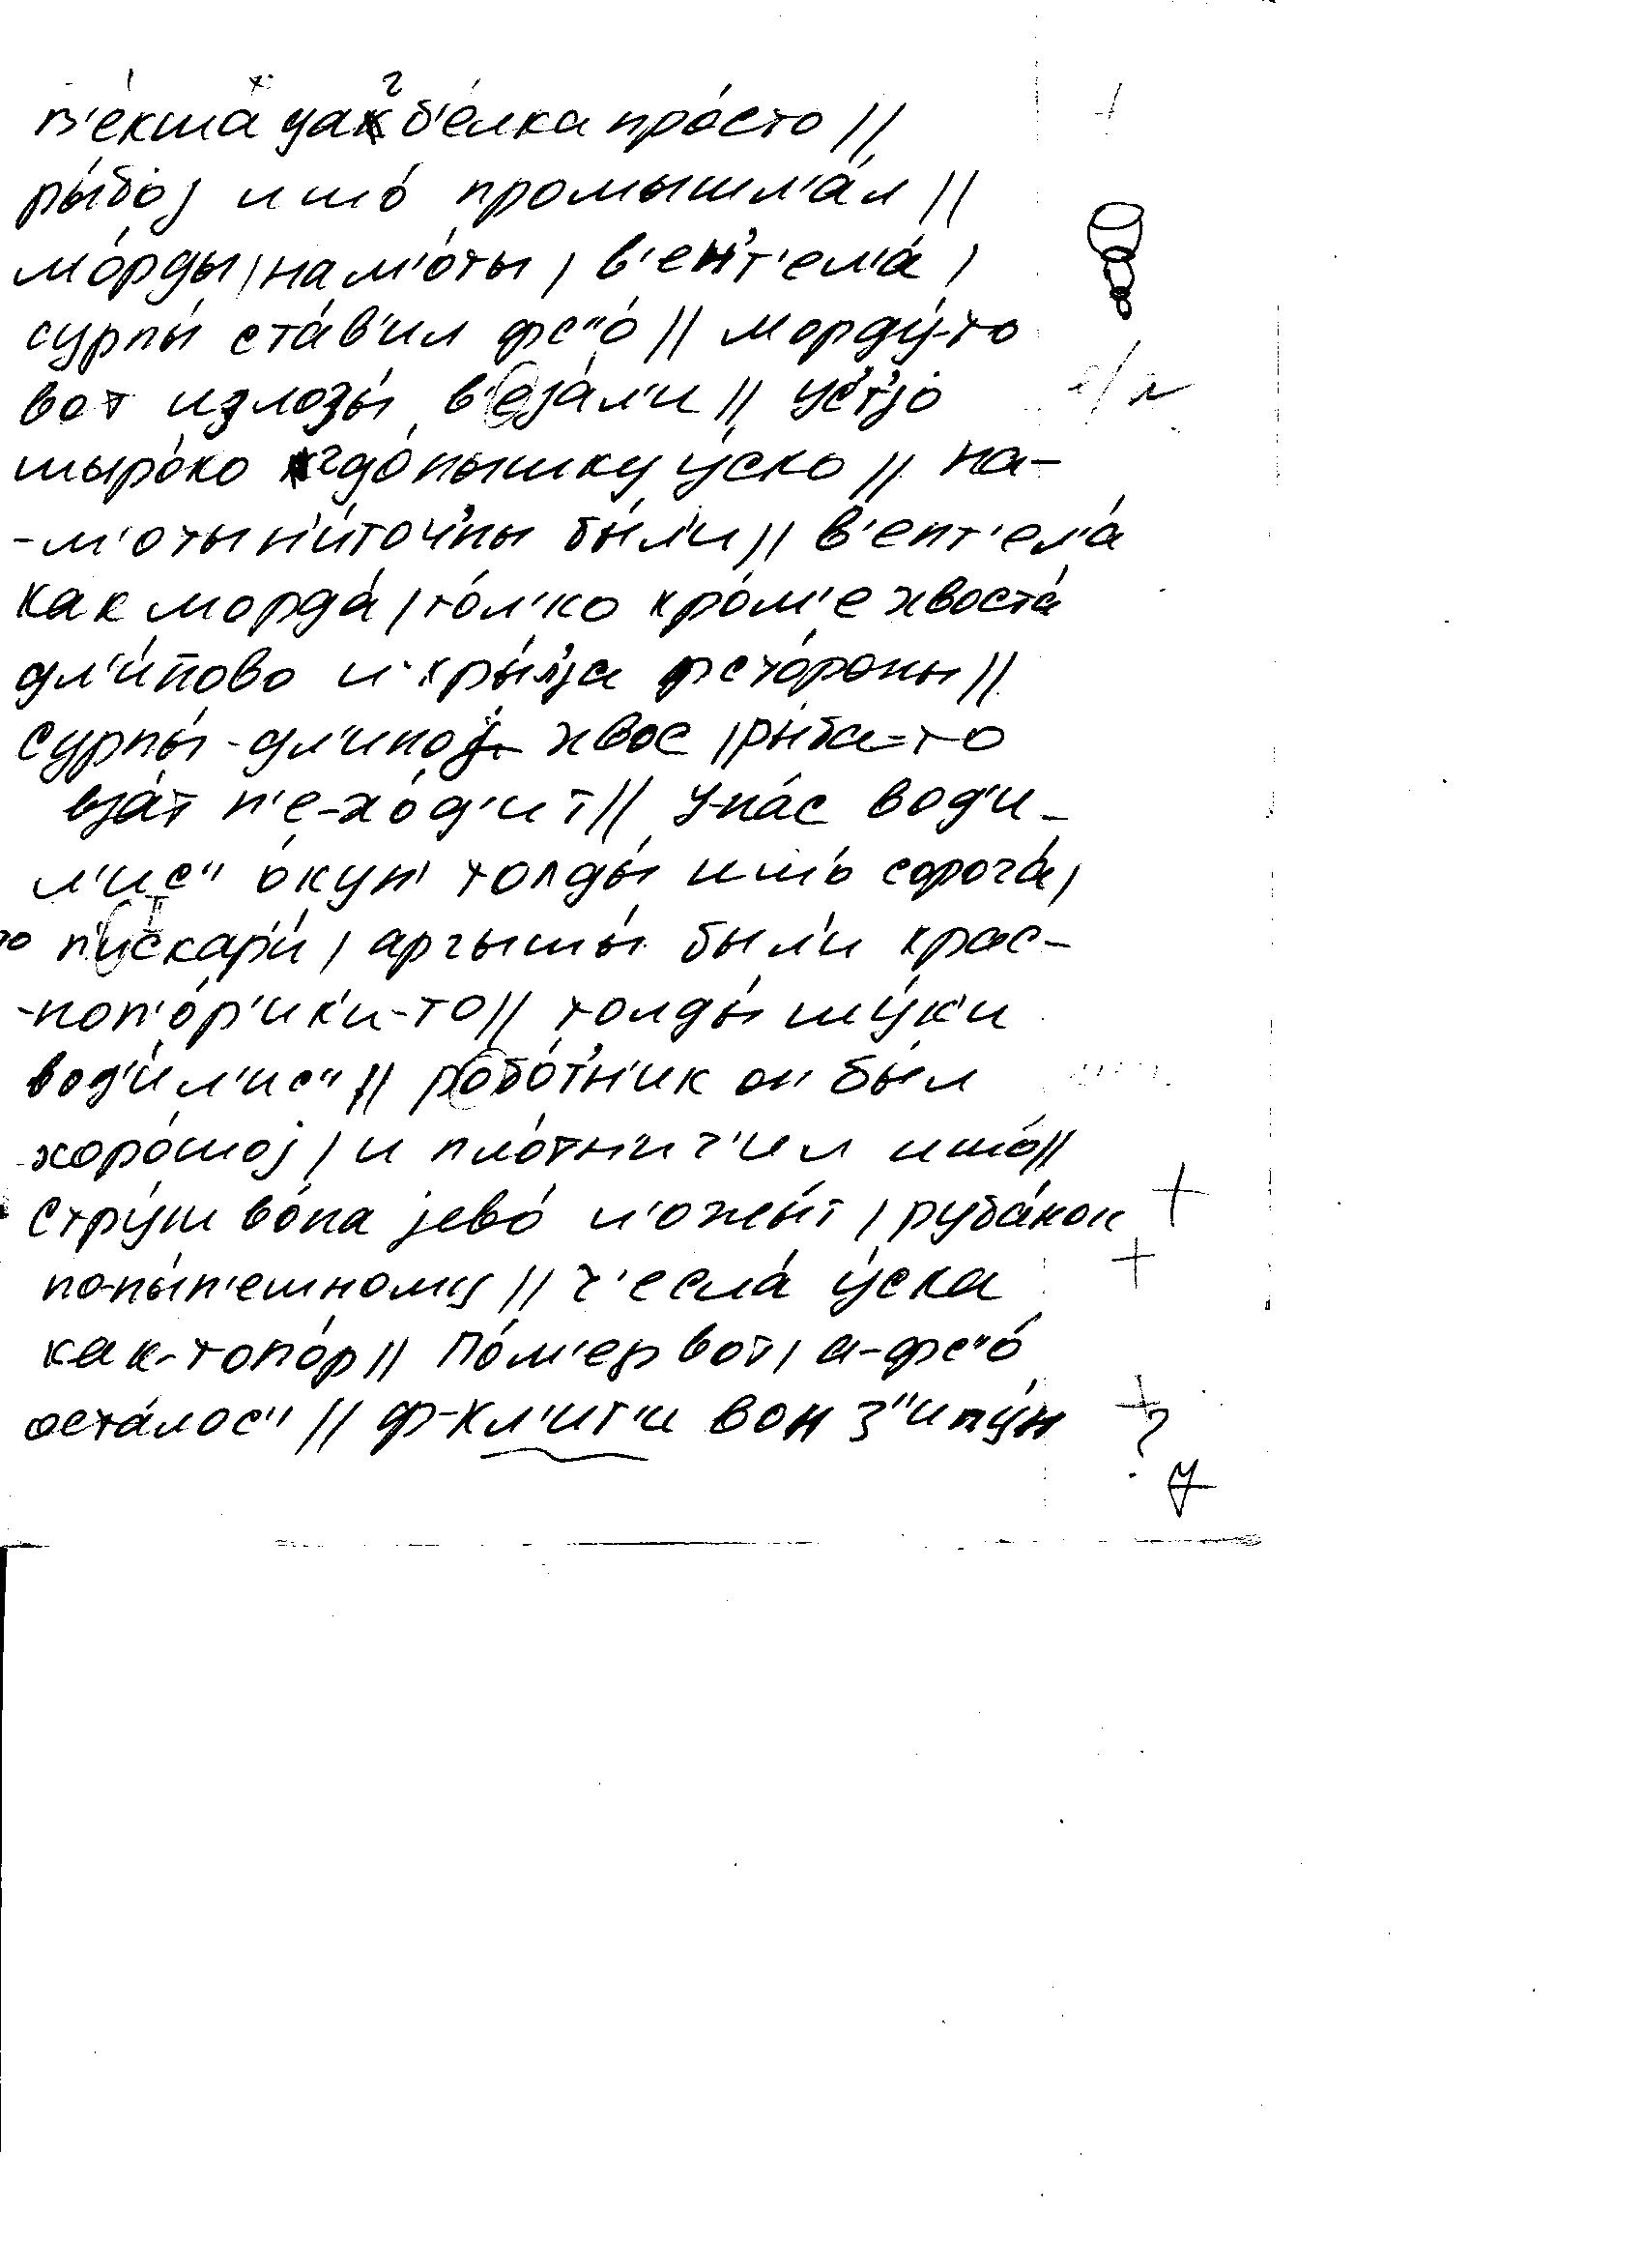 в'е́кша дак б'е́лка про́сто //
ры́бој ишо́ промышл'а́л //
мо́рды / нам'о́ты / в'ент'ел'а́ /
сурпы́ ста́в'ил фс"о́ // морду́-то
вот излозы́ в'еја́л'и // у́с'т'јо
шыро́ко г до́нышку у́ско // на-
-м'оты н'и́точны бы́л'и // в'ент'ел'а́
как морда́ / то́л'ко кро́м'е хвоста́
дл'и́ново и кры́л'јa фсто́роны //
сурпы́ - дл'и́ној хвос / ры́ба-то
взат н'е-хо́д'ит // у-на́с вод'и-
л'ис" о́кун' толды́ ишо́ сорога́ /
п'искар'и́ / аргышы́ бы́л'и крас-
-ноп'о́р'ик'и-то // толды́ шу́к'и
вод'и́л'ис" // робо́т'н'ик он бы́л
хоро́шој / и пло́тн'ич'ил ишо́ //
стру́ш во́на јево́ л'ожы́т / руба́нок
по-ны́н'ешному // ч'есла́ у́ска
как-топо́р // По́м'ер вот / а-фс"о́
оста́лос" // ф-кл'ит'и вон з"ипу́н